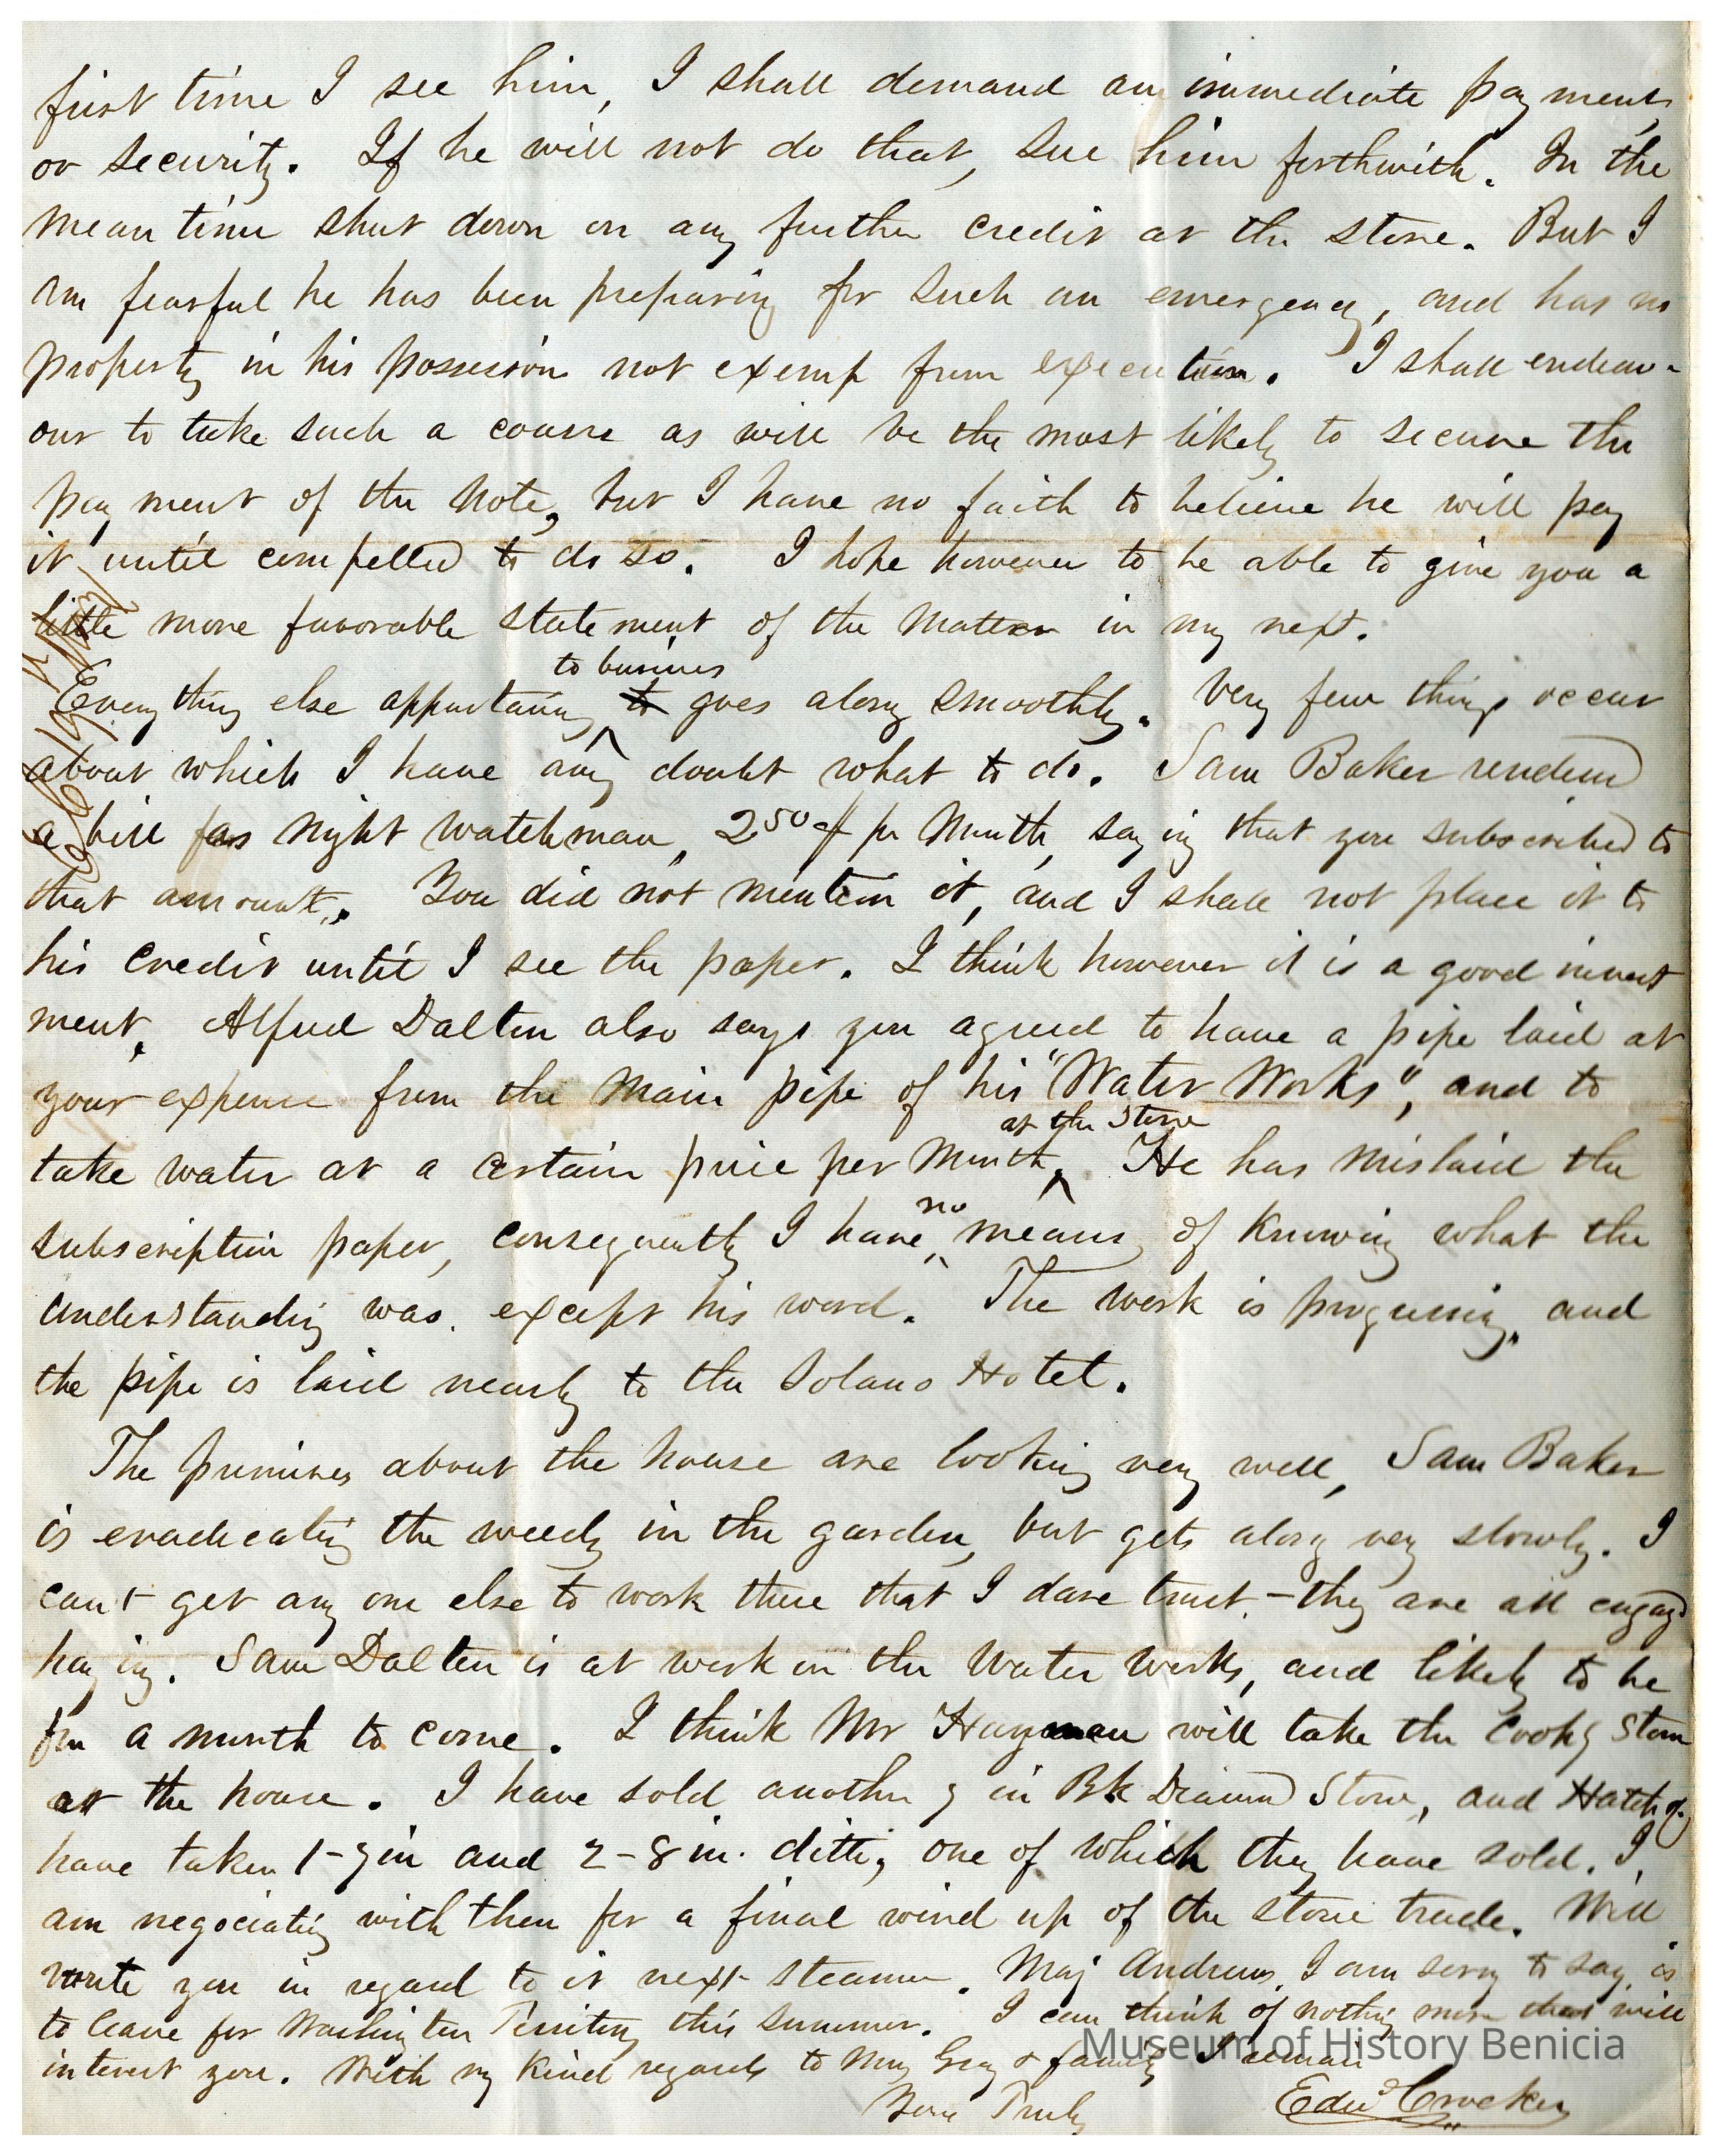 first time I see him, I shall demand an immediate payment
or security. If he will not do that, sue him forthwith. In the
mean time shut down on any further credit at the store. But I
am fearful he has been preparing for such an emergency, and has no
property in his possession not exemp from execution. I shall endeav-
our to take such a course as will be the most likely to secure the
payment of the note, but I have no faith to believe he will pay
it until compelled to do so. I hope however to be able to give you a
little more favorable statement of the matter in my next.
to business
Every thing else appertaining to goes along smoothly. Very few things occur
about which I have any doubt what to do. Sam Baker rendered
a bill as night watchman, 2 50 per Month, saying that you subscribed to
that amount. You did not mention it, and I shall not place it to
his credit until I see the paper. I think however it is a good invest
ment. Alfred Dalton also says you agreed to have a pipe laid at
your expense from the main pipe of his "Water Works", and to
at the Store
take water at a certain price per Month. He has mislaid the
no
subscription paper, consequently I have means of knowing what the
understanding was, except his word. The work is progressing, and
the pipe is laid nearly to the Solano Hotel.
The premises about the house are looking very well, Sam Baker
is eradicating the weeds in the garden, but gets along very slowly. I
can't get any one else to work there that I dare trust - they are all engagd
haying. Sam Dalton is at work on the Water works, and likely to be
for a month to come. I think Mr Hayman will take the Cookg Stove
at the house. I have sold another 7 in Bk Diamd Stove, and Hatch
have taken 1-7in and 2-8 in. ditto, one of which they have sold. I
am negociating with them for a final wind up of the stove trade. Will
write you in regard to it next steamer. Maj Andrews, I am sorry to say, is
to leave for Washington Territory this summer. I can think of nothing more that will
interest you. With my kind regards to Mrs Gray & family I remain
Yours Truly
Edwd Crocker
Museum of History Benicia